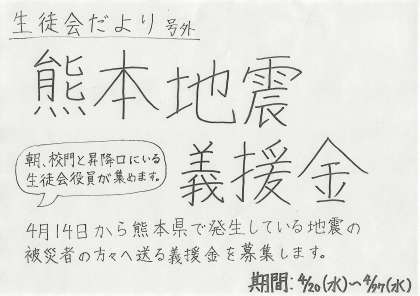 生徒会だより 号外
熊本地震
義援金
朝、校門と昇降口にいる
生徒会役員が集めます。
4月14日から熊本県で発生している地震の
被災者の方々へ送る義援金を募集します。
期間: 4/20(水)～4/27(水)